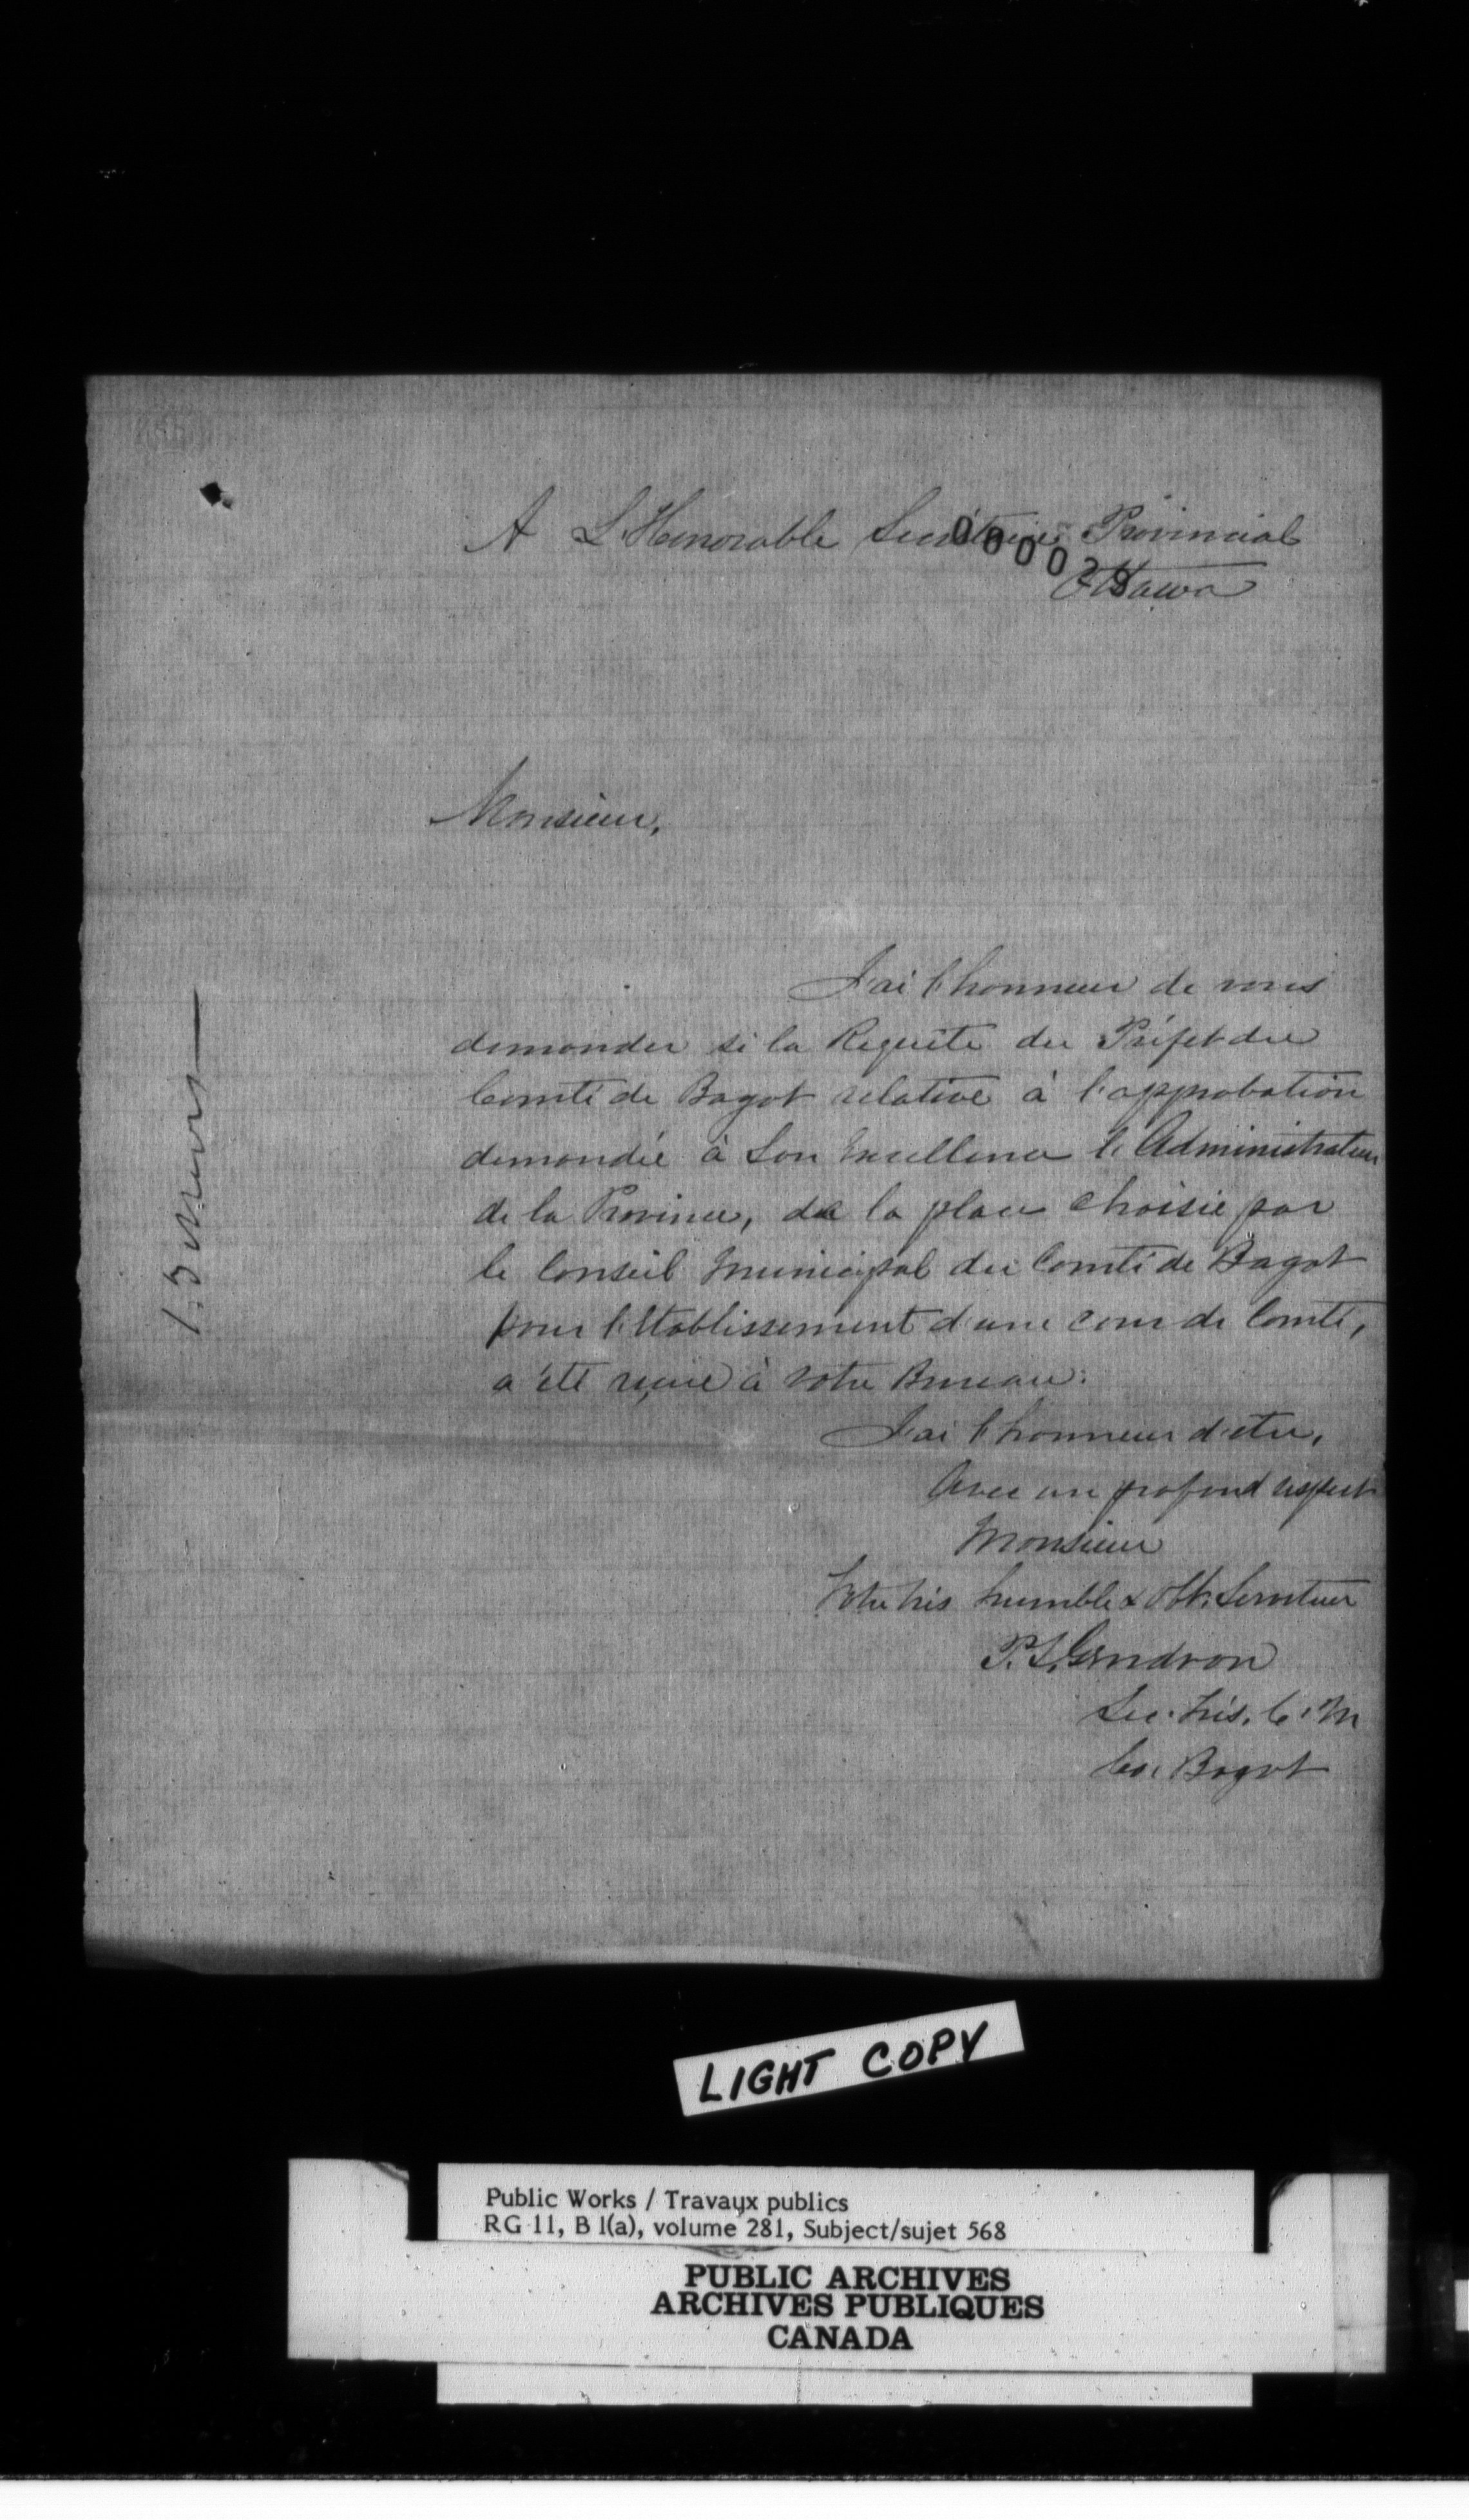 A L'Honorable Secrétaire Provincial
000028
Ottawa
Monsieur,
J'ai l'honneur de vous
demander si la Requête du Préfet du
Comté de Bagot relative à l'approbation
demandée à Son Excellence l'Administrateur
de la Province, de la place choisie par
le Conseil Municipal du Comté de Bagot
pour l'Etablissement d'une cour de Comté,
a été reçue à votre Bureau.
J'ai l'honneur d'etre,
Avec un profond respect
Monsieur
Votre très humble & Obt. Serviteur
P. S. Gendron
Sec. trés. C. M
Co. Bagot
LIGHT COPY
Public Works / Travaux publics
RG 11, B 1(a), volume 281, Subject/sujet 568
PUBLIC ARCHIVES
ARCHIVES PUBLIQUES
CANADA